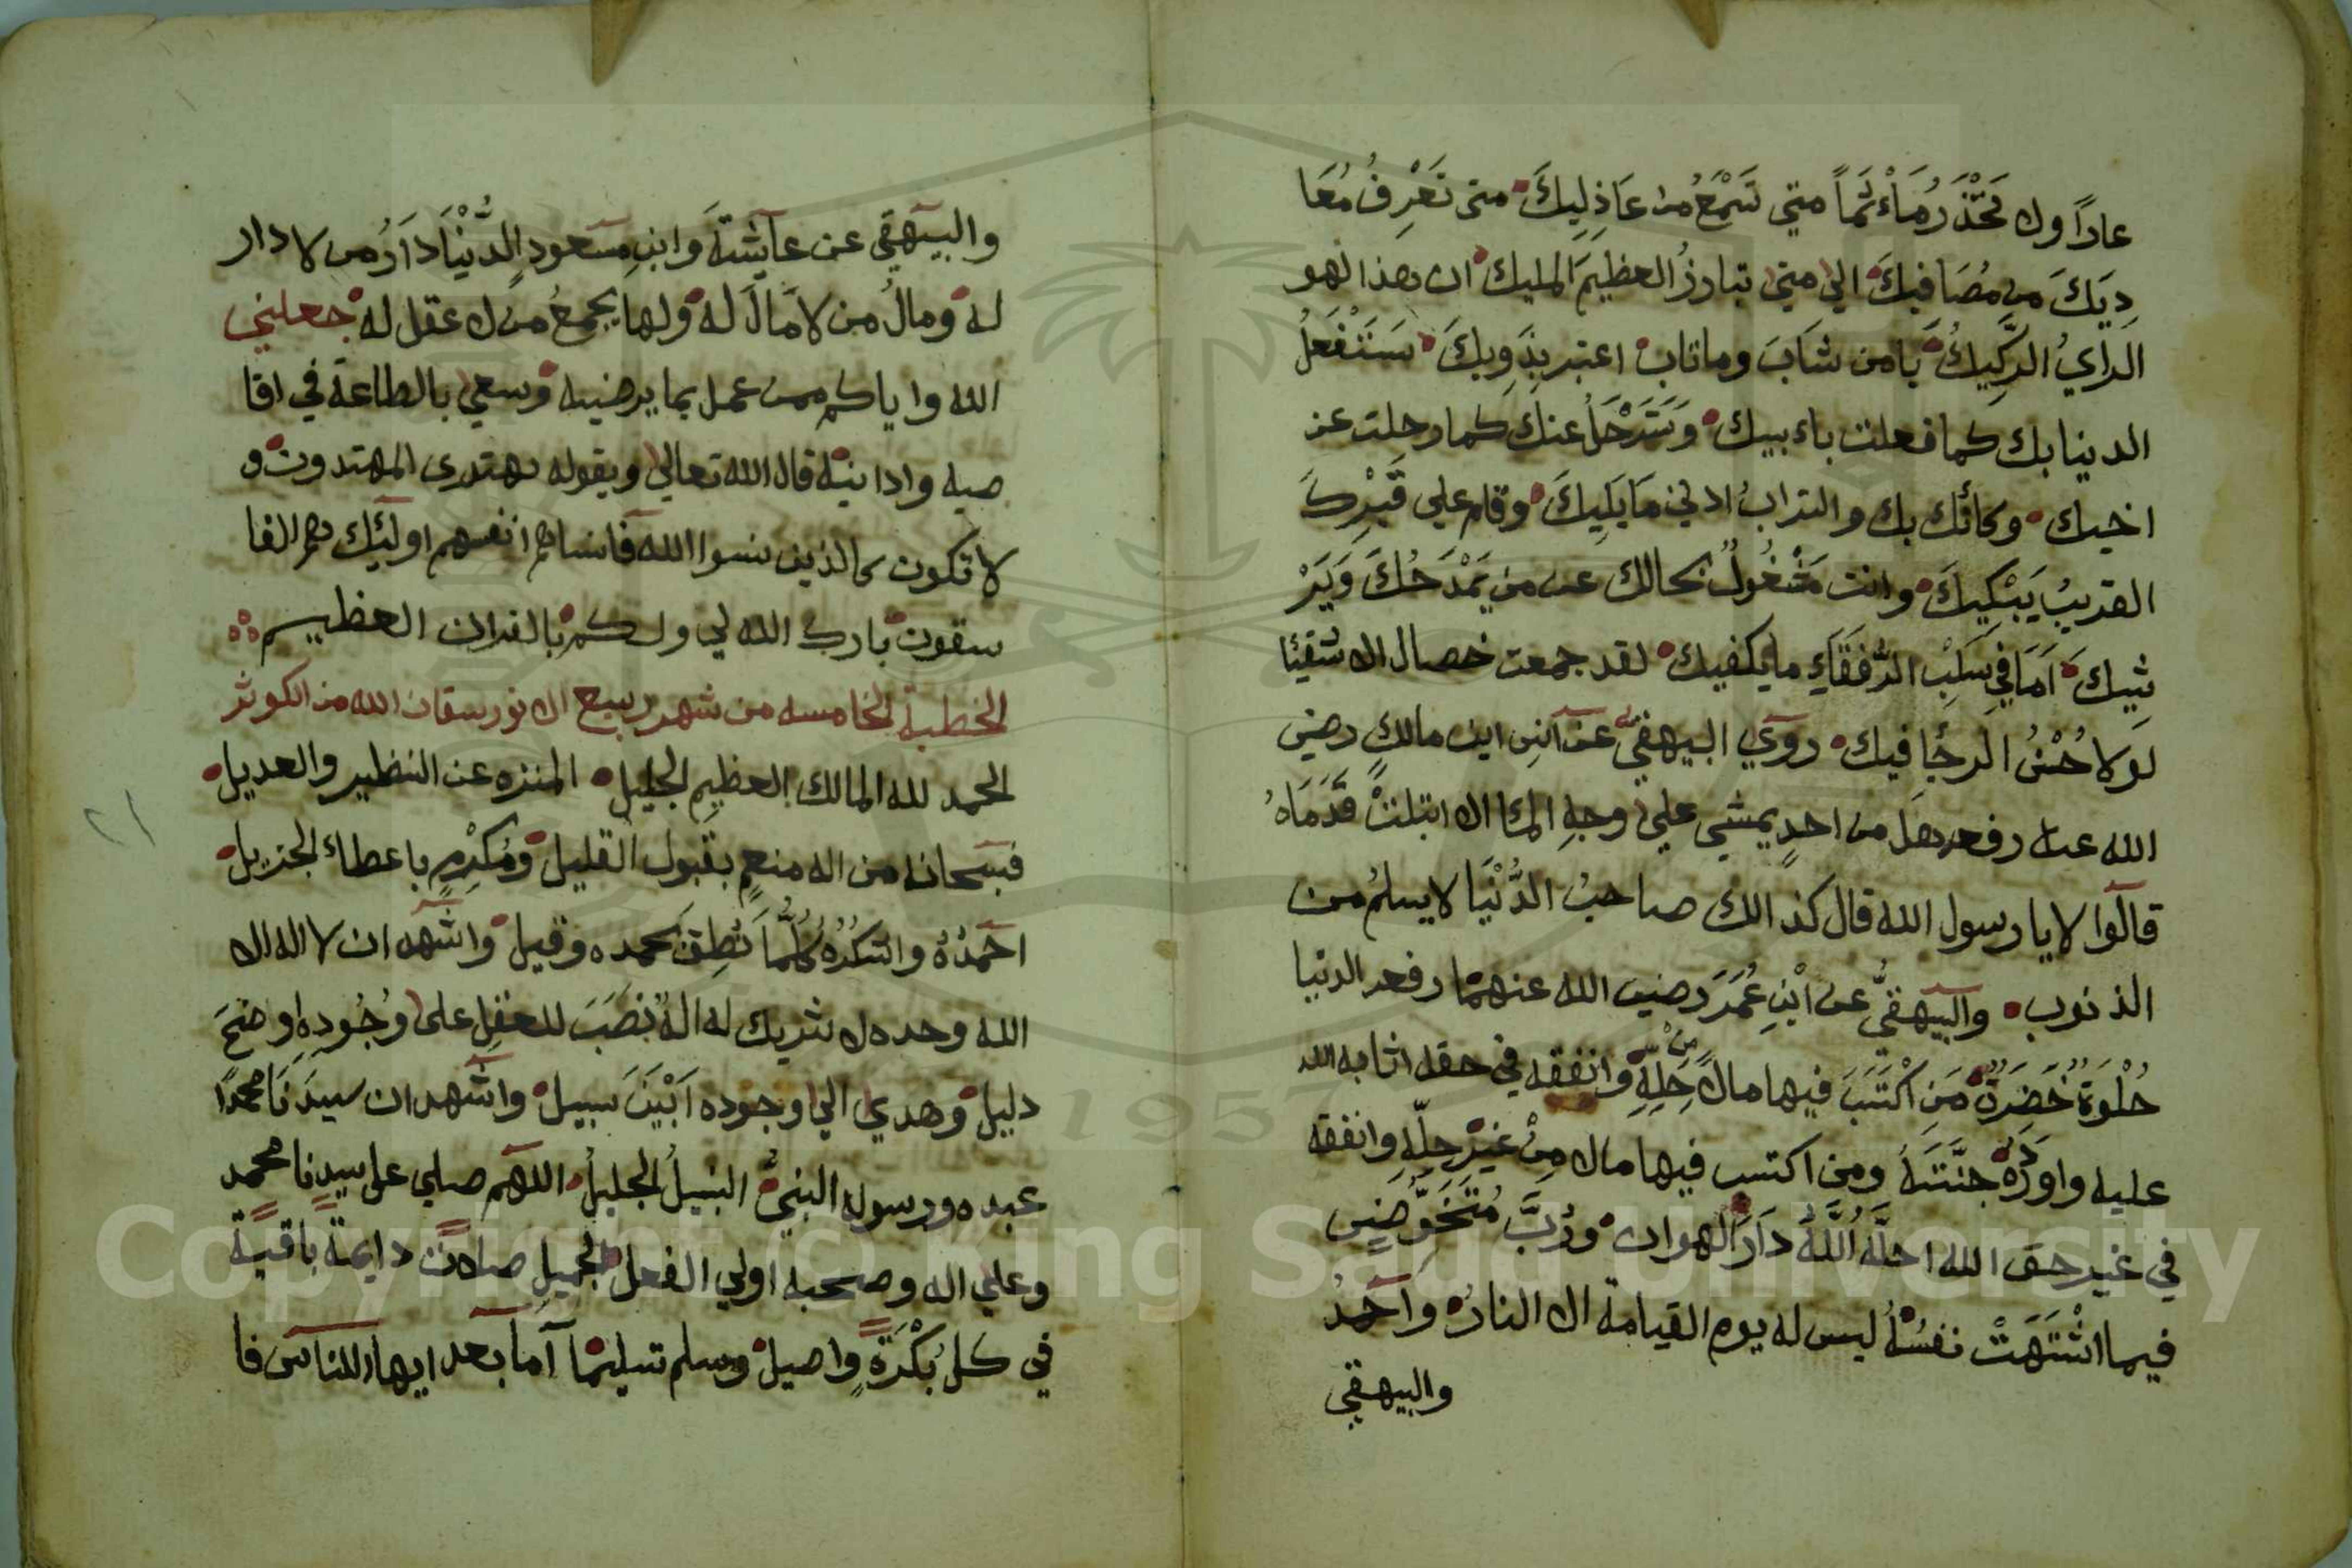 عاراً ولا تحْذَرُ مَأْثَماً متي تَسْمَعُ من عَاذِلِيكَ متي تَعْرِفُ مُعَا
دِيَكَ من مُصَافِيكَ الي متي تبارزُ العظيمَ المليك ان هذا لهو
الرايُ الرَّكِيكُ يا من شَابَ وما تاب اعتبر بِذَوِيكَ سَتَفْعَلُ
الدنيا بك كما فعلت باءبيك وَسَتَرْحَلُ عنك كما رحلت عن
اخيك وكانك بك والترابُ ادني مَا يَلِيكَ وقام علي قَبْرِكَ
القريبُ يَبْكِيكَ وانت مَشْغُولٌ بحالك عن من يَمْدَحُكَ وَيَرْ
ثِيكَ اَمَا في سَلْبِ الرُّفَقَاءِ ما يكفيك لقد جمعت خصال الاشقيا
لولا حُسْنُ الرجُا فيك رَوَي البيهقي عن انس ابن مالكٍ رضي
الله عنه رفعه هل من احدٍ يمشي علي وجهِ الماء الا ابتلتْ قَدَمَاهُ
قالوا لا يا رسول الله قال كذالك صاحبُ الدُّنْيَا لا يسلمُ من
الذنوب والبيهقيُّ عن ابْنِ عُمَرَ رضي الله عنهما رفعه الدنيا
حُلْوَةٌ خَضِرَةٌ مَنِ اكْتَسَبَ فيها مالاً مِنْ حِلِّهِ وانفقه في حقه اثابه الله
عليه واورَدَهُ جنَّتَهُ ومن اكتسب فيها مالا مِنْ غيرِ حِلِّهِ وانفقه
في غير حق الله احلَّهُ اللَّهُ دَارَ الهوان ورُبَّ مُتَخَوِّضٍ
فيما اشْتَهَتْ نفسُهُ ليس له يوم القيامة الا النارُ واَحمدُ
والبيهقي
والبيهقي عن عايشةَ وابنِ مسعود الدُّنْيَا دَارُ من لا دار
له ومالُ من لا مَالَ له ولها يجمعُ من لا عقل له جعلني
الله واياكم ممن عمل بما يرضيه وسعي بالطاعة في اقا
صيه وادانيه قال الله تعالي وبقوله يهتدي المهتدون و
لا تكون كالذين نسوا الله فانساهم انفسهم اوليك هم الفا
سقون بارك الله لي ولكم بالقران العظيم
الخطبة الخامسه من شهر ربيع الانور سقان الله من الكوثر
الحمد لله المالك العظيمِ الجليل المنزه عن النظير والعديل
فسبحانه من اله منعمٍ بقبول القليل ومُكْرِمٍ باعطاء الجزيل
احمَدُهُ واشكرُهُ كُلَّمَا نُطِقَ بحمده وقيل واشهد ان لا اله الا
الله وحده لا شريك له الهٌ نَصَبَ للعقلِ علي وُجُودِهِ اوضحَ
دليل وهدي الي وجوده اَبْيَنَ سبيل واشهد ان سيدَنَا محمدًا
عبده ورسوله النبيُّ النبيلُ الجليلُ اللهم صلي علي سيدنا محمد
وعلي اله وصحبه اولي الفعل الجميل صلاةً دايمةً باقيةً
في كل بُكْرَةٍ واصيل وسلم تسليما اَما بعد ايها الناس فا
٢١
Copyright © King Saud University
1957